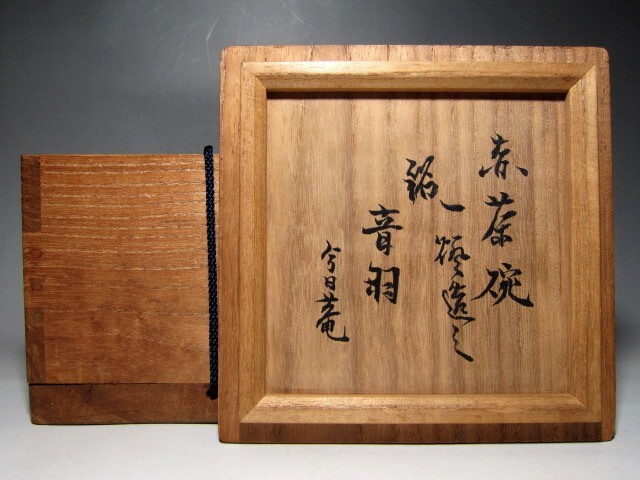 赤茶碗
一燈造之
銘
音羽
今日菴